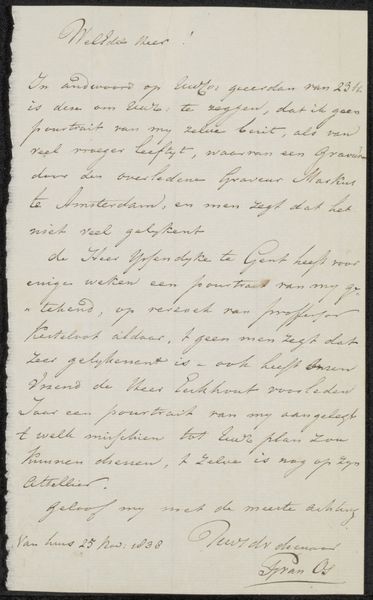 WelEdle Heer!
In andwoord op UwE: geerden van 23 
is dese om UwE: te zeggen, dat ik geen
pourtrait van my zelve besit, als van
veel vroeger leeftyt, waarvan een Gravure
door den overledene Graveur Markus
te Amsterdam, en men zegt dat het
niet veel gelykent
de Heer Ypendyke te Gent heeft voor
eenige weken een pourtrait van my ge-
tekend, op versoek van proffesor
Kesteloot aldaar, 't geen men zegt dat
zeer gelykenent is - ook heeft onsen
Vriend de Heer Eeckhout voorleden
Jaar een pourtrait van my aangelegt
't welk misschien tot UwE plan zou
kunnen dienen, 't zelve is nog op zyn
Attellier.
geloof my met de meeste achting
Van huis 25 Nov: 1838
UwEdv dienaar
van Os